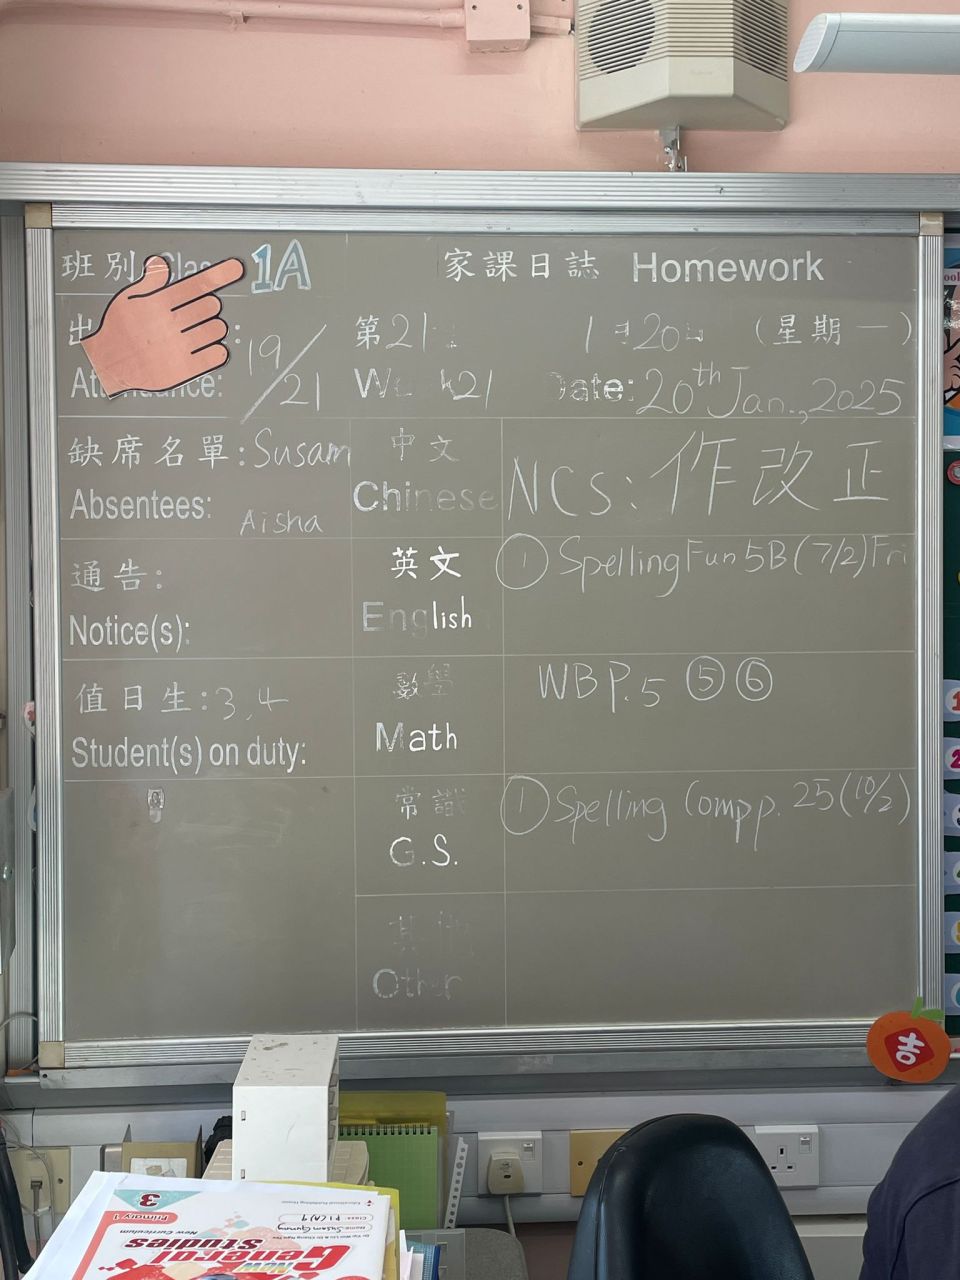 班別 Clas 1A 家課日誌 Homework
出 : 19/21 第21 1月20日 (星期一)
Attendance: Week 21 Date: 20th Jan., 2025
缺席名單: Susam 中文
Absentees: Aisha Chinese NCs: 作改正
通告: 英文 ① Spelling Fun 5B (7/2) Fri
Notice(s): English
值日生: 3, 4 數學 WB P. 5 ⑤ ⑥
Student(s) on duty: Math
常識 ① Spelling Comp p. 25 (10/2)
G.S.
其他
Other
吉
3
Primary 1
New Curriculum
New
General
Studies
Educational Publishing House
Class: P.1(A)
Name: Susam Gurung